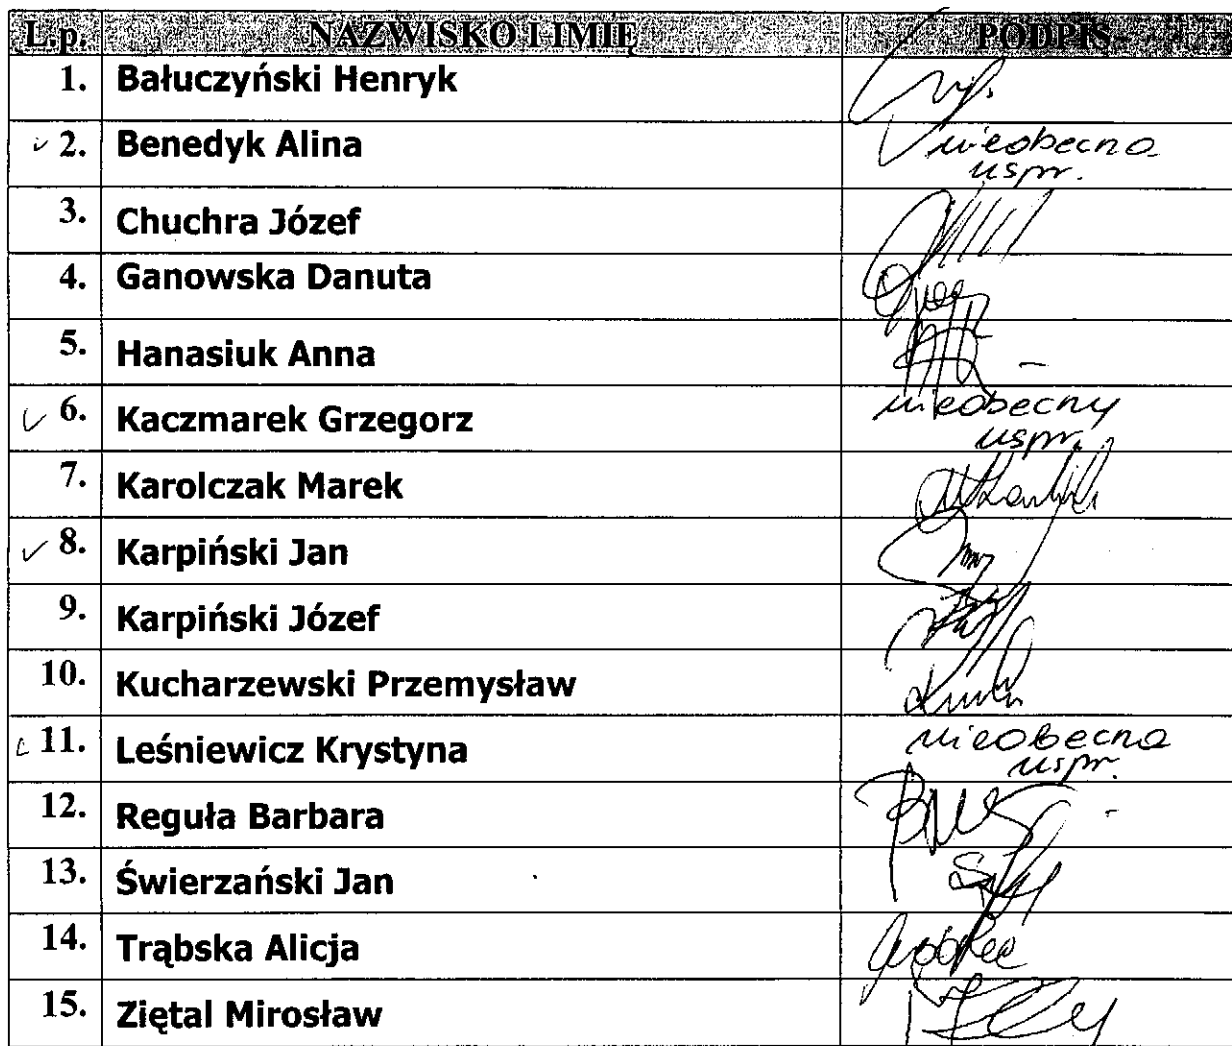 L.p. NAZWISKO I IMIĘ PODPIS
1. Bałuczyński Henryk
2. Benedyk Alina nieobecna
uspr.
3. Chuchra Józef
4. Ganowska Danuta
5. Hanasiuk Anna
6. Kaczmarek Grzegorz nieobecny
uspr.
7. Karolczak Marek
8. Karpiński Jan
9. Karpiński Józef
10. Kucharzewski Przemysław
11. Leśniewicz Krystyna nieobecna
uspr.
12. Reguła Barbara
13. Świerzański Jan
14. Trąbska Alicja
15. Ziętal Mirosław